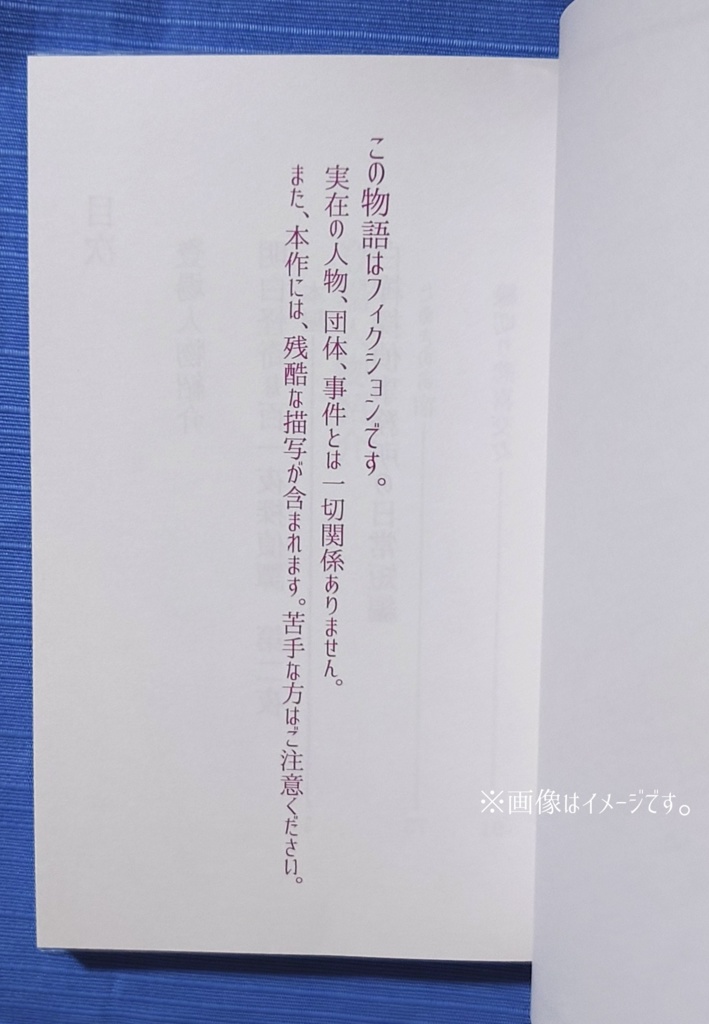 この物語はフィクションです。
実在の人物、団体、事件とは一切関係ありません。
また、本作には、残酷な描写が含まれます。苦手な方はご注意ください。
※画像はイメージです。
目次
登場人物紹介